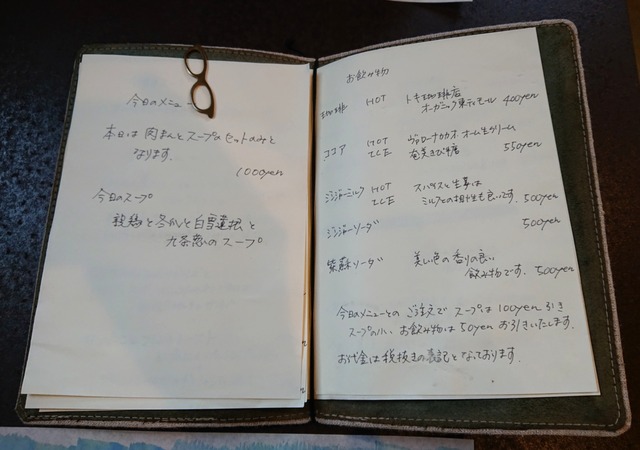 今日のメニュー
本日は肉まんとスープのセットのみと
なります。
1000yen
今日のスープ
親鶏と冬瓜と白雪蓮根と
九条葱のスープ
お飲み物
珈琲 HOT トキ珈琲店
オーガニック東ティモール 400yen
ココア HOT ヴァローナカカオ、ホーム生クリーム
ICE 奄美きび糖 550yen
ジンジャーミルク HOT スパイスと生姜は
ICE ミルクとの相性も良いです。500yen
ジンジャーソーダ 500yen
紫蘇ソーダ 美しい色の香りの良い
飲み物です。500yen
今日のメニューとのご注文でスープは100yen引き
スープの小、お飲み物は50yenお引きいたします。
お代金は税抜きの表記となっております。